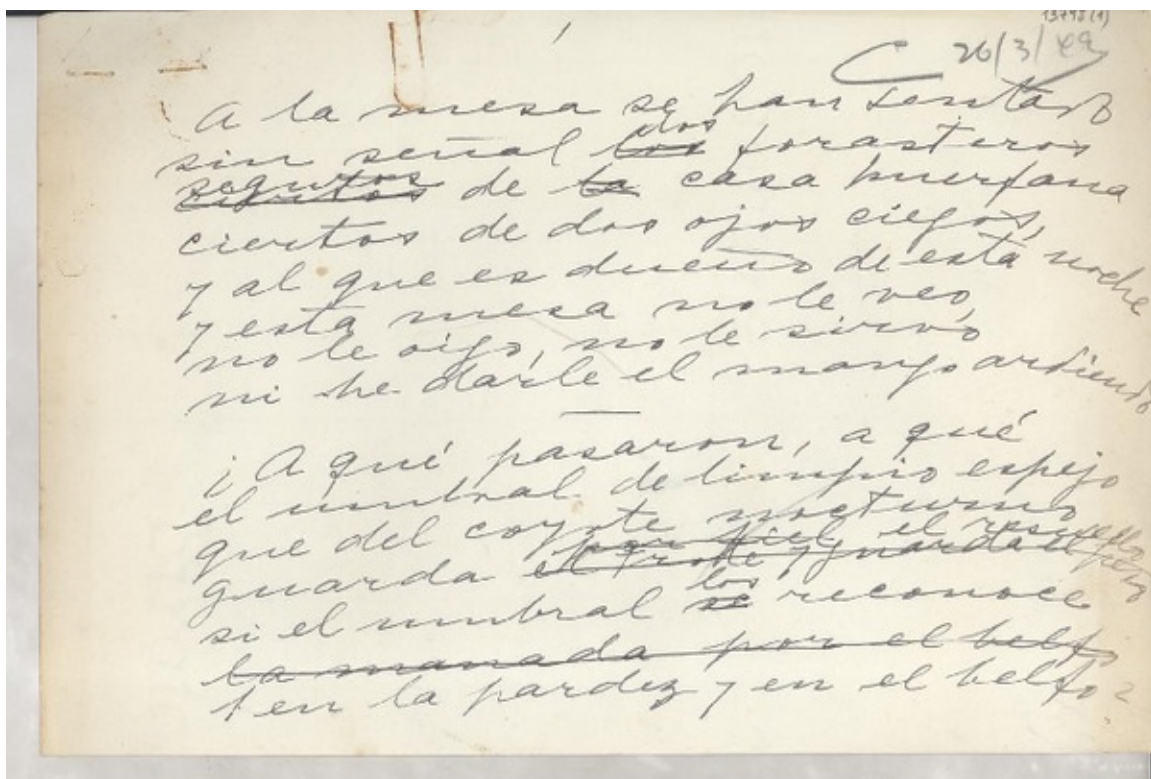 13748(1)
26/3/49
A la mesa se han sentado
dos
sin señal los forasteros
seguros
ciertos de la casa huerfana
ciertos de dos ojos ciegos,
y al que es dueño de esta noche
y esta mesa no le veo,
no le oigo, no le sirvo
ni he darle el mango ardiendo
¡A qué pasaron, a qué
el umbral de limpio espejo
que del coyote nocturno
por fiel el resuello
guarda el trote y guarda el
los
si el umbral se reconoce
la manada por el belfo
en la pardez y en el belfo?